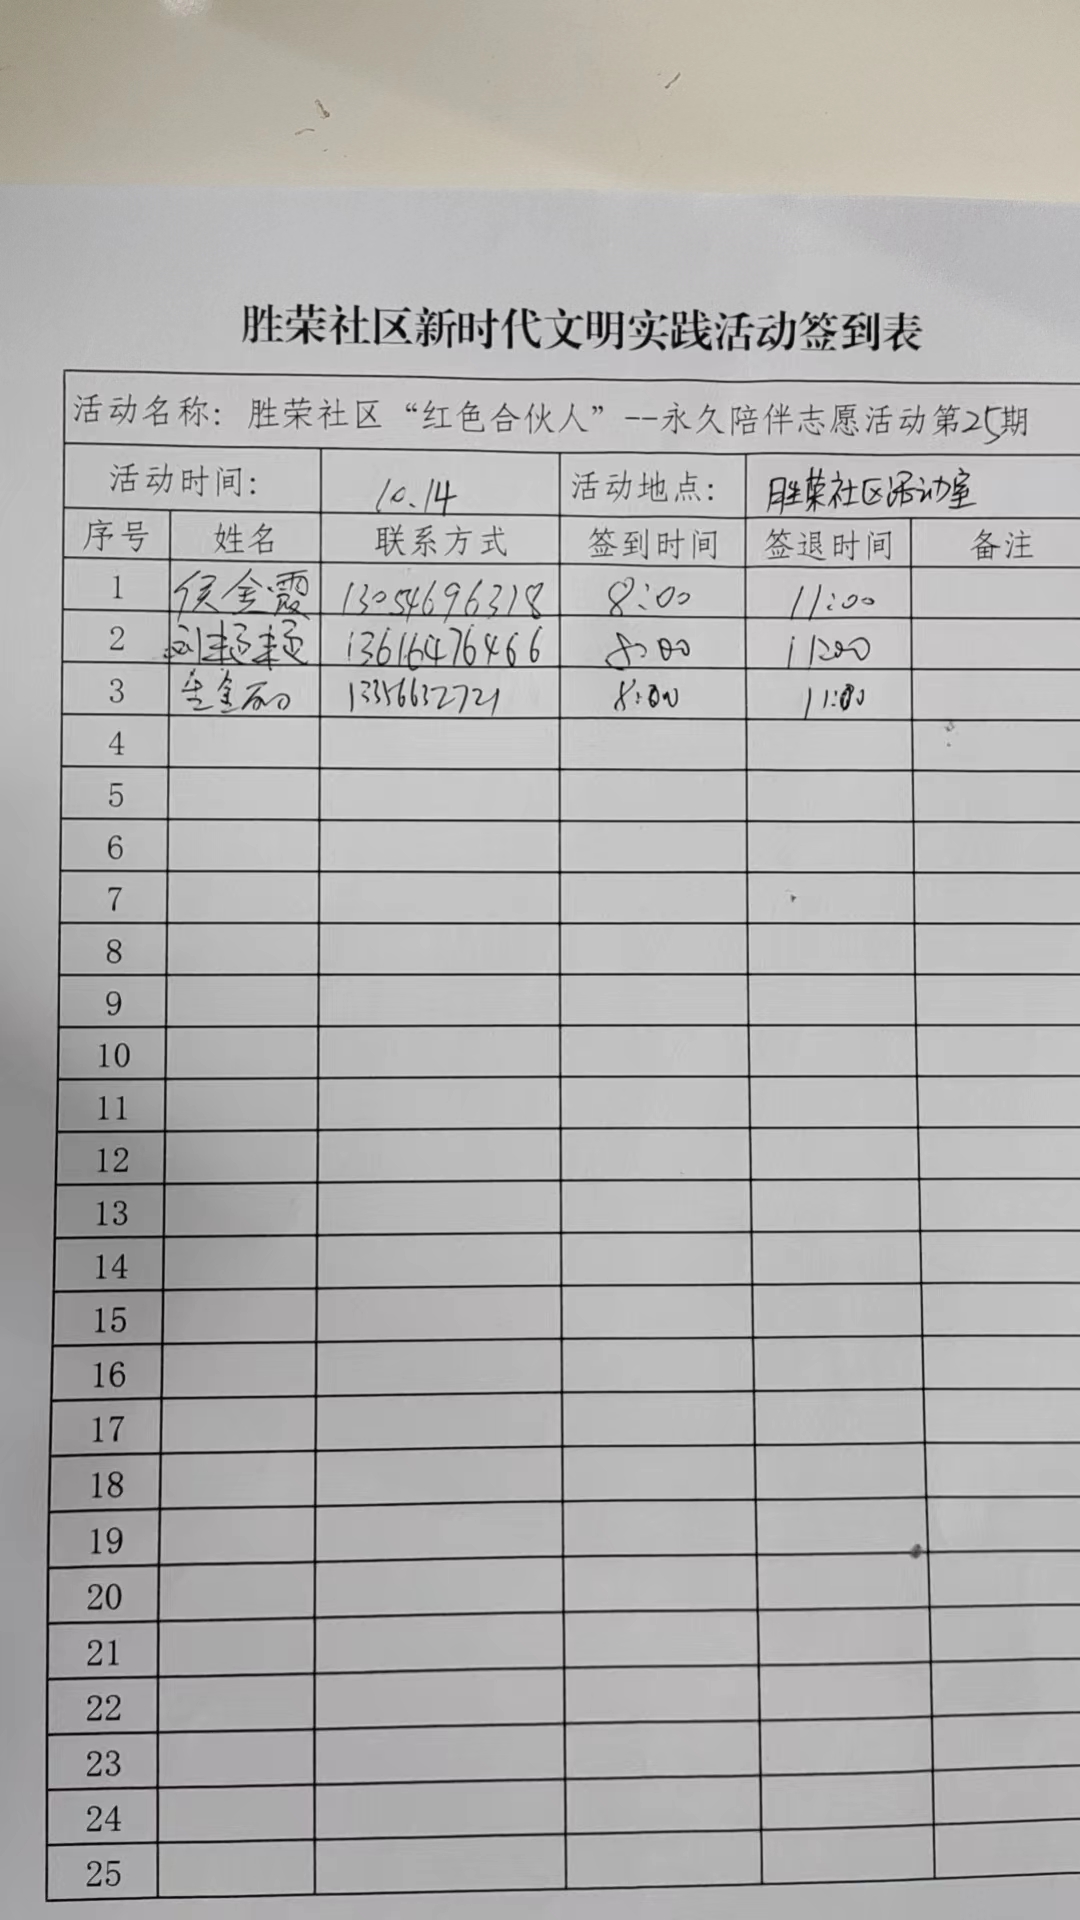 胜荣社区新时代文明实践活动签到表
活动名称：胜荣社区“红色合伙人”--永久陪伴志愿活动第25期
活动时间： 10.14 活动地点： 胜荣社区活动室
序号 姓名 联系方式 签到时间 签退时间 备注
1 侯金霞 13054696318 8:00 11:00
2 13616476466 8:00 11:00
3 13356632721 8:00 11:00
4
5
6
7
8
9
10
11
12
13
14
15
16
17
18
19
20
21
22
23
24
25